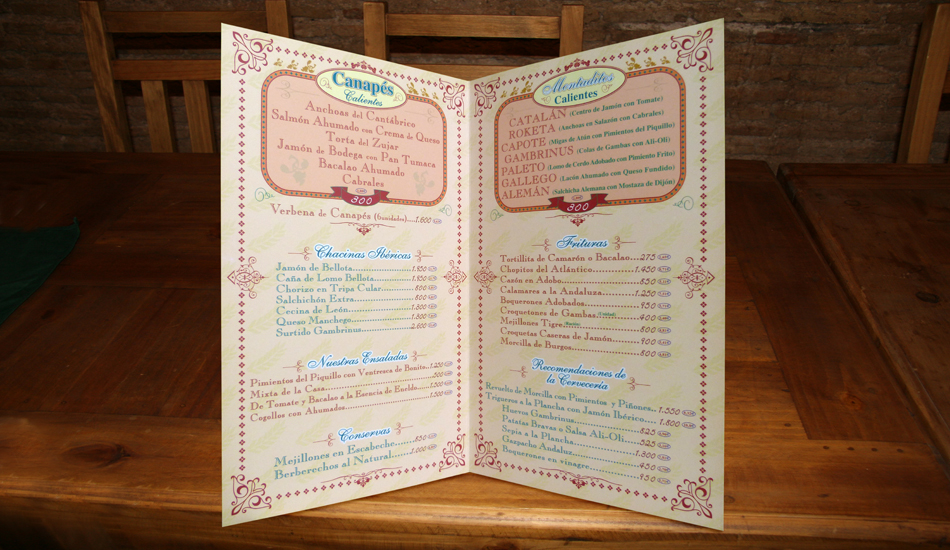 Canapés
Calientes
Anchoas del Cantábrico
Salmón Ahumado con Crema de Queso
Torta del Zujar
Jamón de Bodega con Pan Tumaca
Bacalao Ahumado
Cabrales
300
Verbena de Canapés (6unidades)....1.600
Chacinas Ibéricas
Jamón de Bellota
Caña de Lomo Bellota
Chorizo en Tripa Cular
800
Salchichón Extra
800
Cecina de León
Queso Manchego
Surtido Gambrinus
Nuestras Ensaladas
Pimientos del Piquillo con Ventresca de Bonito..1.250
Mixta de la Casa
De Tomate y Bacalao a la Esencia de Eneldo
Cogollos con Ahumados
Conservas
Mejillones en Escabeche
Berberechos al Natural
Montaditos
Calientes
CATALÁN (Centro de Jamón con Tomate)
ROKETA (Anchoas en Salazón con Cabrales)
CAPOTE (Migas de Atún con Pimientos del Piquillo)
GAMBRINUS (Colas de Gambas con Ali-Oli)
PALETO (Lomo de Cerdo Adobado con Pimiento Frito)
GALLEGO (Lacón Ahumado con Queso Fundido)
ALEMÁN (Salchicha Alemana con Mostaza de Dijón)
300
Frituras
Tortillita de Camarón o Bacalao...275
Chopitos del Atlántico
1.450
Cazón en Adobo
850
Calamares a la Andaluza
1.250
Boquerones Adobados
950
Croquetones de Gambas
400
Mejillones Tigre
800
Croquetas Caseras de Jamón
900
Morcilla de Burgos
800
Recomendaciones de
la Cervecería
Revuelto de Morcilla con Pimientos y Piñones..1.350
Trigueros a la Plancha con Jamón Ibérico....1.800
Huevos Gambrinus
825
Patatas Bravas o Salsa Ali-Oli
525
Sepia a la Plancha
1.300
Gazpacho Andaluz
450
Boquerones en vinagre
950